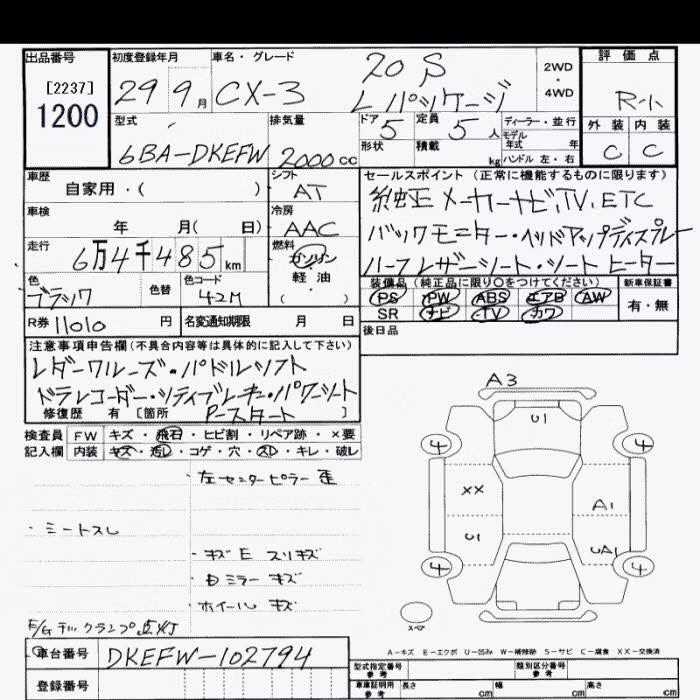 出品番号
[2237]
1200
初度登録年月
29 9月
車名・グレード
CX-3
20S
Lパッケージ
2WD
・
4WD
評価点
R-小
外装 内装
C C
型式
6BA-DKEFW
排気量
2000cc
ドア
5
定員
5人
形状
積載
kg
ディーラー・並行
モデル
年式 年
ハンドル 左・右
車歴
自家用・( )
シフト
AT
セールスポイント (正常に機能するものに限ります)
純正メーカーナビ,TV,ETC
バックモニター・ヘッドアップディスプレー
ハーフレザーシート・シートヒーター
車検
年 月( 日)
冷房
AAC
走行
6万4千485km
燃料
ガソリン
軽油
( )
色
ブラック
色替
色コード
42M
装備品 (純正品に限り○をつけてください)
PS PW ABS エアB AW
SR ナビ TV カワ
新車保証書
有・無
R券 11010円
名変通知期限 月 日
後日品
注意事項申告欄(不具合内容等は具体的に記入して下さい)
レダークルーズ・パドルシフト
ドラレコーダー・シティブレーキ・パワーシート
Pースタート
修復歴 有 [箇所 ]
検査員
記入欄
FW キズ・飛石・ヒビ割・リペア跡・×要
内装 キズ・汚レ・コゲ・穴・スレ・キレ・破レ
・左センターピラー歪
・ミートスレ
・キズE スリキズ
・Dミラー キズ
・ホイール キズ
E/Gチェックランプ点灯
A3
U1
4
4
XX
A1
U1
UA1
4
4
スペア
A-キズ E-エクボ U-凹み W-補修跡 S-サビ C-腐食 XX-交換済
車台番号
DKEFW-102794
登録番号
型式指定番号
参考
類別区分番号
参考
車庫証明用
参考
長さ cm
幅 cm
高さ cm